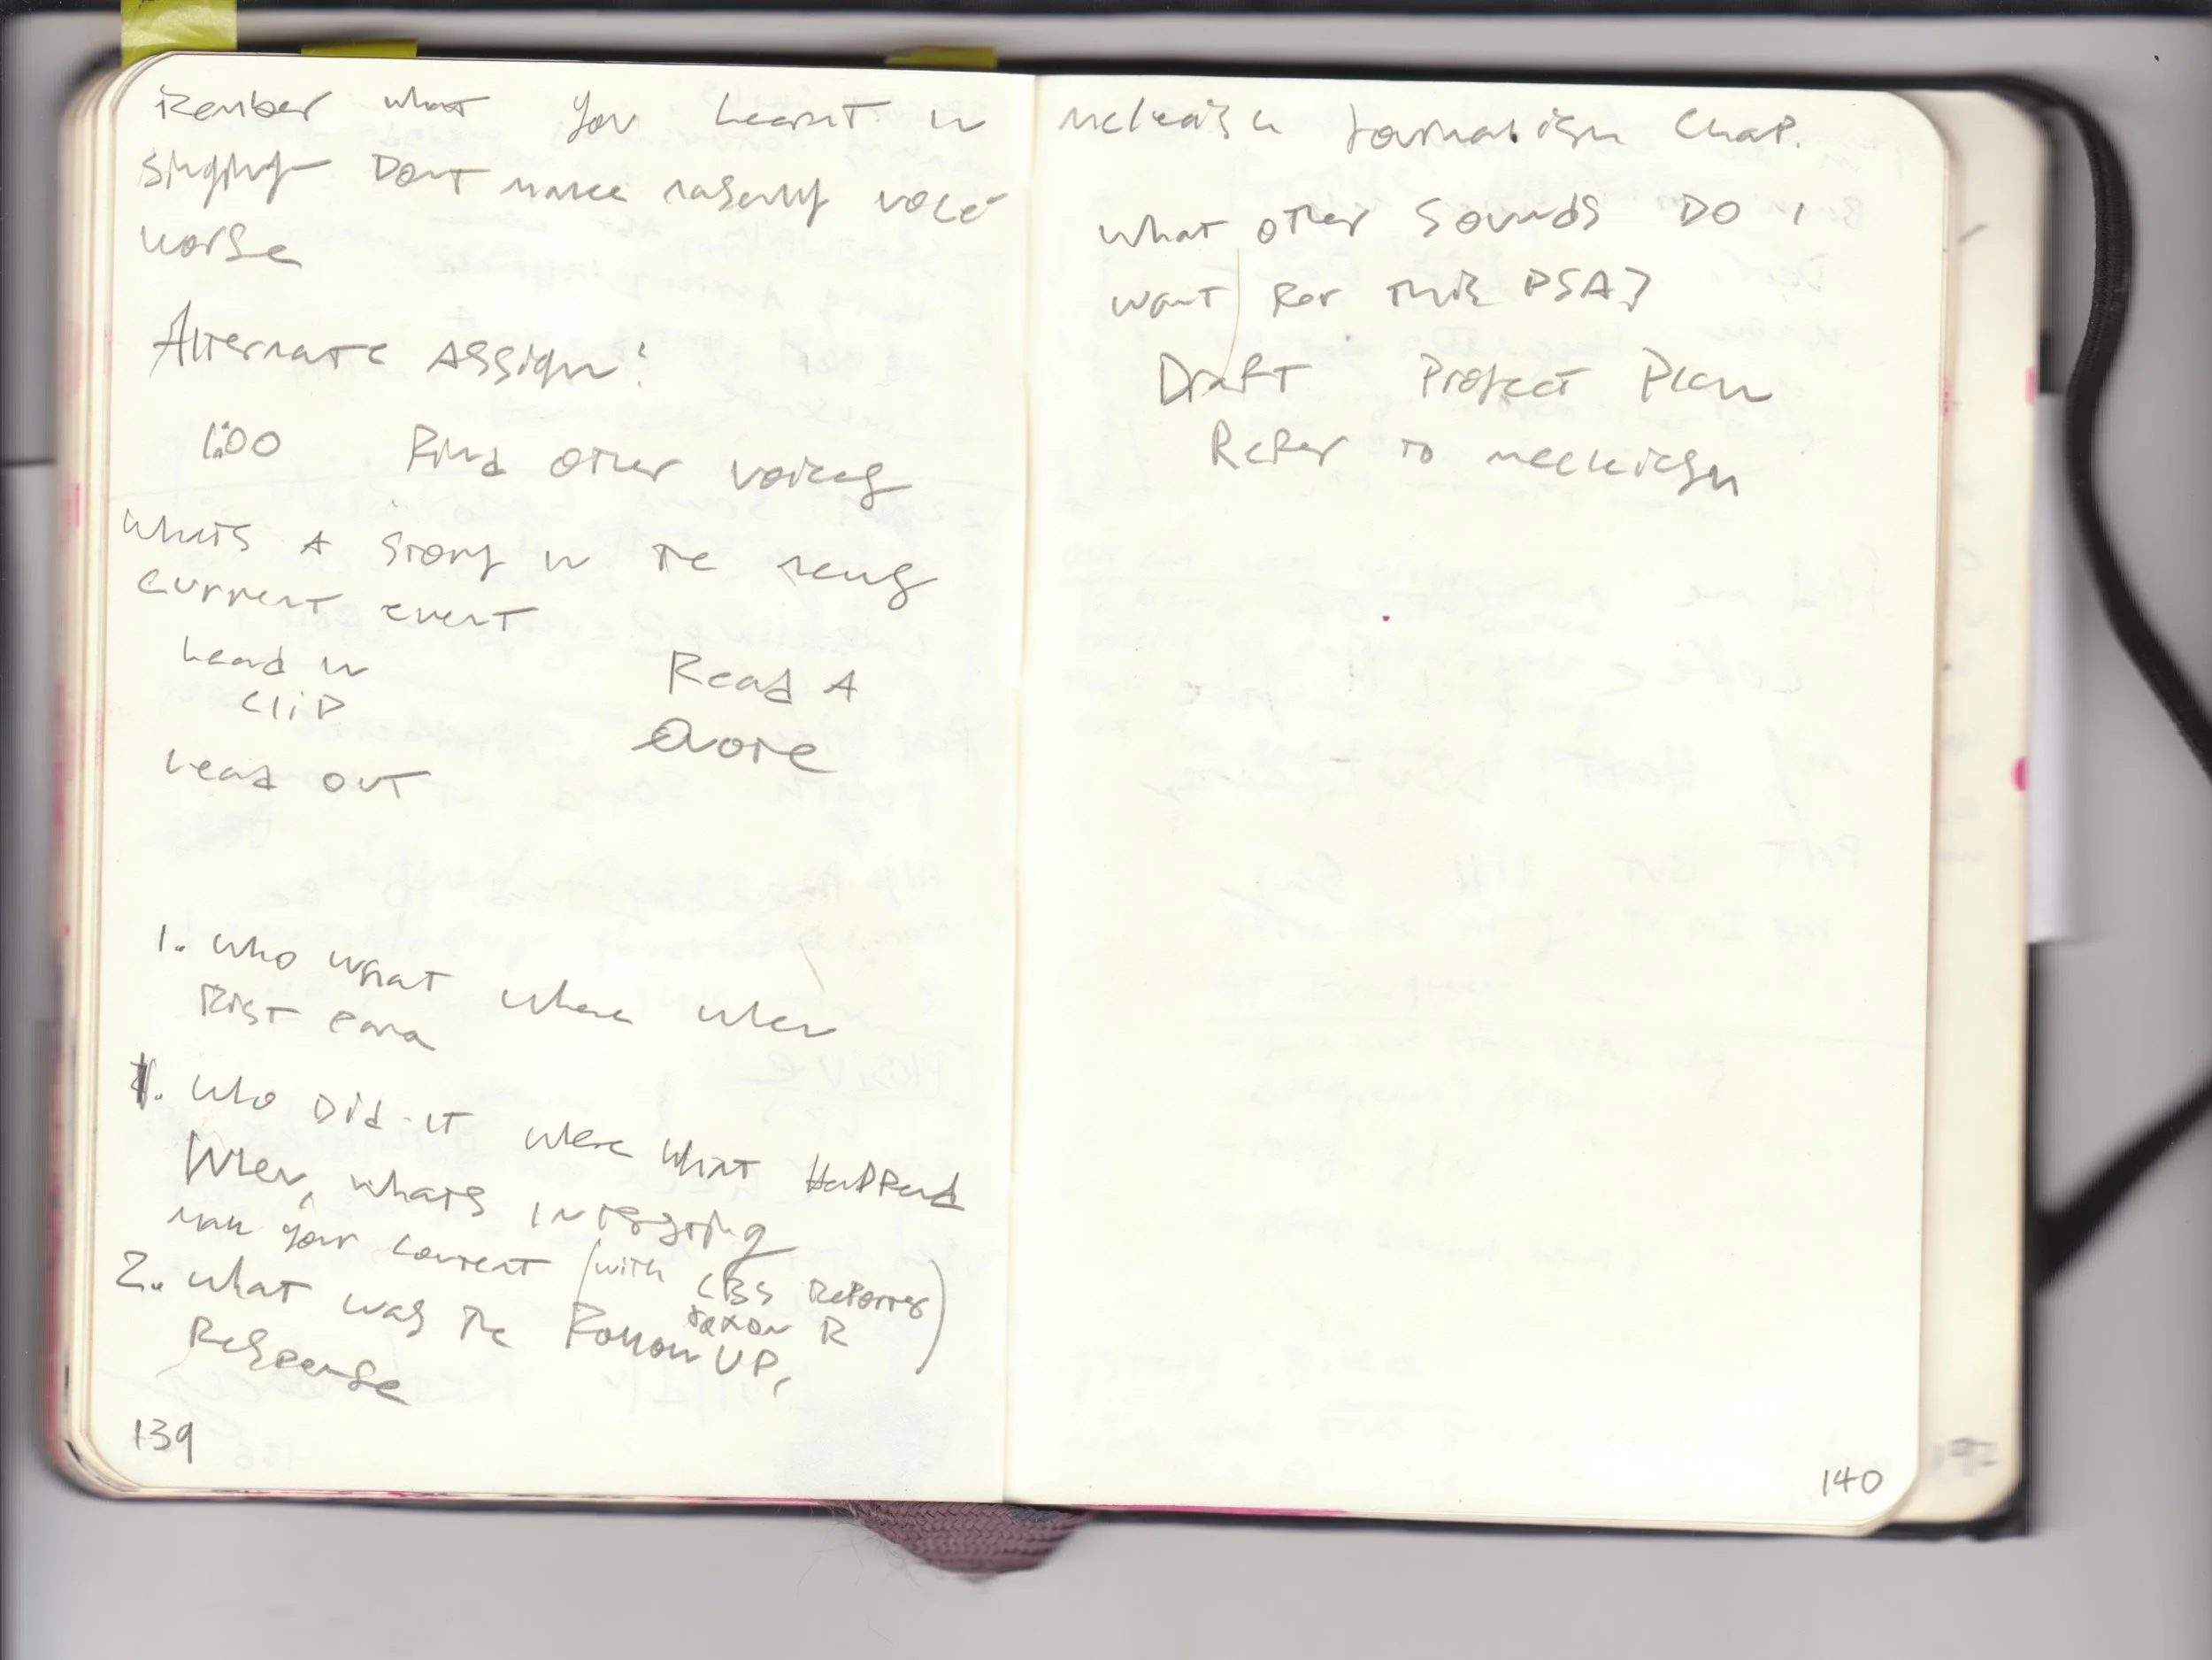 Rember what you learnt in
singing Dont make nasally voice
worse
Alternate Assign:
1:00 Find other voices
Whats A Story in the news
current event
Lead in
Clip
Read A
Quote
Lead out
1. Who what where when
First Para
1. Who Did it where what Happend
When, whats
your content (with CBS Reporter
R)
2. What was the Follow UP,
Response
139
Journalism Chap.
What other Sounds DO I
want for this PSA?
Draft Project Plan
Refer to
140